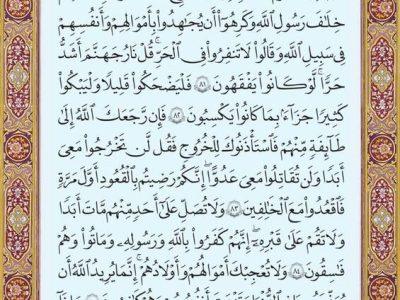 خِلَٰفَ رَسُولِ ٱللَّهِ وَكَرِهُوٓا۟ أَن يُجَٰهِدُوا۟ بِأَمْوَٰلِهِمْ وَأَنفُسِهِمْ
فِى سَبِيلِ ٱللَّهِ وَقَالُوا۟ لَا تَنفِرُوا۟ فِى ٱلْحَرِّ ۗ قُلْ نَارُ جَهَنَّمَ أَشَدُّ
حَرًّا ۚ لَّوْ كَانُوا۟ يَفْقَهُونَ ٨١ فَلْيَضْحَكُوا۟ قَلِيلًا وَلْيَبْكُوا۟
كَثِيرًا جَزَآءًۢ بِمَا كَانُوا۟ يَكْسِبُونَ ٨٢ فَإِن رَّجَعَكَ ٱللَّهُ إِلَىٰ
طَآئِفَةٍ مِّنْهُمْ فَٱسْتَـْٔذَنُوكَ لِلْخُرُوجِ فَقُل لَّن تَخْرُجُوا۟ مَعِىَ
أَبَدًا وَلَن تُقَٰتِلُوا۟ مَعِىَ عَدُوًّا ۖ إِنَّكُمْ رَضِيتُم بِٱلْقُعُودِ أَوَّلَ مَرَّةٍ
فَٱقْعُدُوا۟ مَعَ ٱلْخَٰلِفِينَ ٨٣ وَلَا تُصَلِّ عَلَىٰٓ أَحَدٍ مِّنْهُم مَّاتَ أَبَدًا
وَلَا تَقُمْ عَلَىٰ قَبْرِهِۦٓ ۖ إِنَّهُمْ كَفَرُوا۟ بِٱللَّهِ وَرَسُولِهِۦ وَمَاتُوا۟ وَهُمْ
فَٰسِقُونَ ٨٤ وَلَا تُعْجِبْكَ أَمْوَٰلُهُمْ وَأَوْلَٰدُهُمْ ۚ إِنَّمَا يُرِيدُ ٱللَّهُ أَن